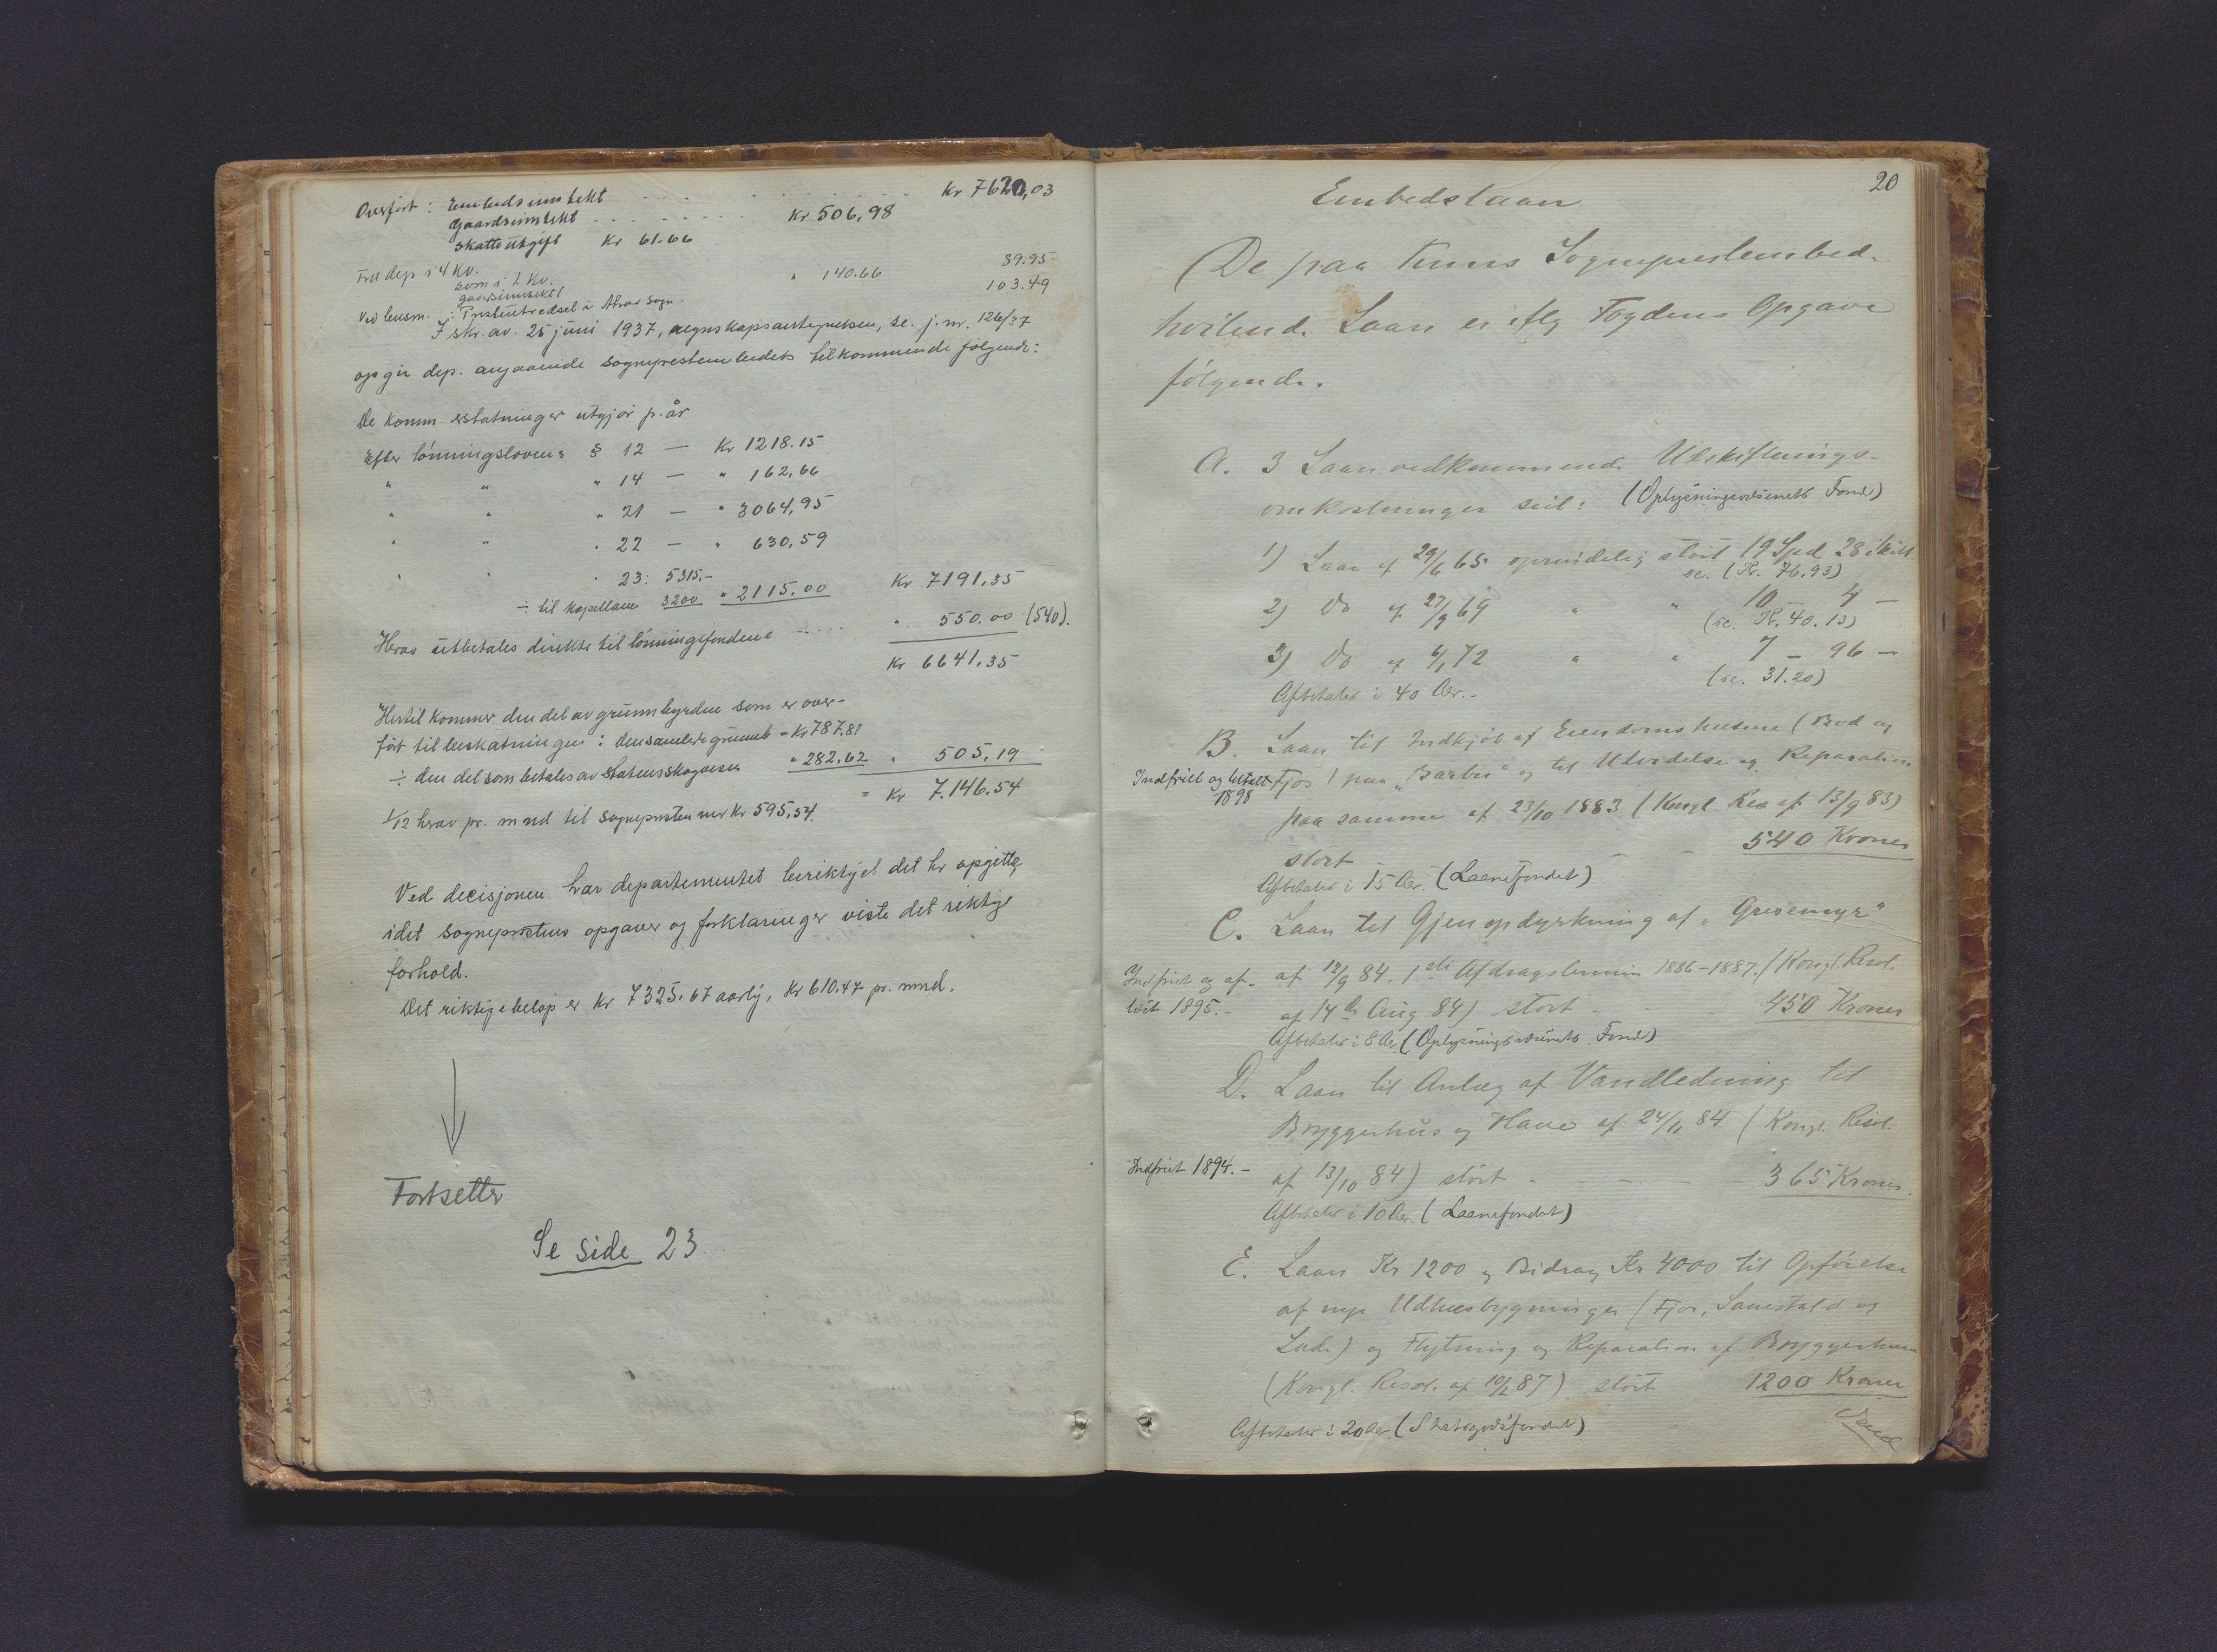 Overført: Embedsinntekt . . . Kr 7620,03
Gaardsinntekt . . . Kr 506,98
Skatteutgift Kr 61.66
Fra dep. i 4 Kv. 39.95
som i 1. Kv. " 140.66 103.49
gaardsinntekt
Ved lensm. : Presteutredsel i sogn.
I skr. av. 25 juni 1937, regnskapsantegnelsen, se. j. nr. 126/37
opgir dep. angaaende sogneprestembedets tilkommende følgende:
De komm. erstatninger utgjør p. år
Efter lønningslovens § 12 — Kr 1218.15
" " " 14 — " 162,66
" " " 21 — " 3064,95
" " " 22 — " 630,59
" " " 23: 5315.-
÷ til kapellanen 3200 " 2115.00 Kr 7191.35
Herav utbetales direkte til lønningsfondene ..... " 550.00 (540).
Kr 6641.35
Hertil kommer den del av grunnbyrden som er over-
ført til beskatningen: Den samlede grunnb = Kr 787.81
÷ den del som betales av Statens skogvesen " 282.62 " 505.19
= Kr 7.146.54
1/12 herav pr. mnd til sognepresten ner Kr 595,54.
Ved decisjonen har departementet beriktiget det her opgitte,
idet sogneprestens opgaver og forklaringer viste det riktige
forhold.
Det riktige beløp er Kr 7325.67 aarlig, Kr 610.47 pr. mnd.
Fortsetter
Se side 23
20
Embedslaan
De paa Sogneprestembed.
hvilende Laan er iflg Fogdens Opgave
følgende.
A. 3 Laan vedkommende Udskiftnings-
omkostninger seil: (Oplysningsvæsenets Fond)
1) Laan af 29/6 65 oprindelig stort 19 Spd 28 Skill
sc. (Kr. 76.93)
2) Do af 27/9 69 " " 10 — 4 —
(sc. Kr. 40.13)
3) Do af 6/1 72 " " 7 — 96 —
(sc. 31.20)
Afbetales i 40 Aar.-
B. Laan til Indkjøb af Eiendomshusene (Bod og
Indfriet og betalt Fjøs) paa "Barbu" og til Utvidelse og Reparation
1898
paa samme af 23/10 1883 (Kongl Res af 13/9 83)
stort 540 Kroner
Afbetales i 15 Aar. (Laanefondet)
C. Laan til Gjenopdyrkning af "Gresemyr"
Indfriet og af- af 12/9 84. 1ste Afdragstermin 1886-1887. (Kongl. Resol.
løst 1895.- af 14de Aug 84) stort - 450 Kroner
Afbetales i 8 Aar (Oplysningsvæsenets Fond)
D. Laan til Anlæg af Vandledning til
Bryggerhus og Have af 24/11 84 (Kongl. Resol.
Indfriet 1894.- af 13/10 84) stort - 365 Kroner.
Afbetales i 10 Aar. (Laanefondet)
E. Laan Kr 1200 og Bidrag Kr 4000 til Opførelse
af nye Udhusbygninger (Fjøs, Sauestald og
Lade) og Flytning og Reparation af Bryggerhuset
(Kongl. Resol. af 10/2 87) stort 1200 Kroner
Afbetales i 20 Aar. (Statsgodsfondet)